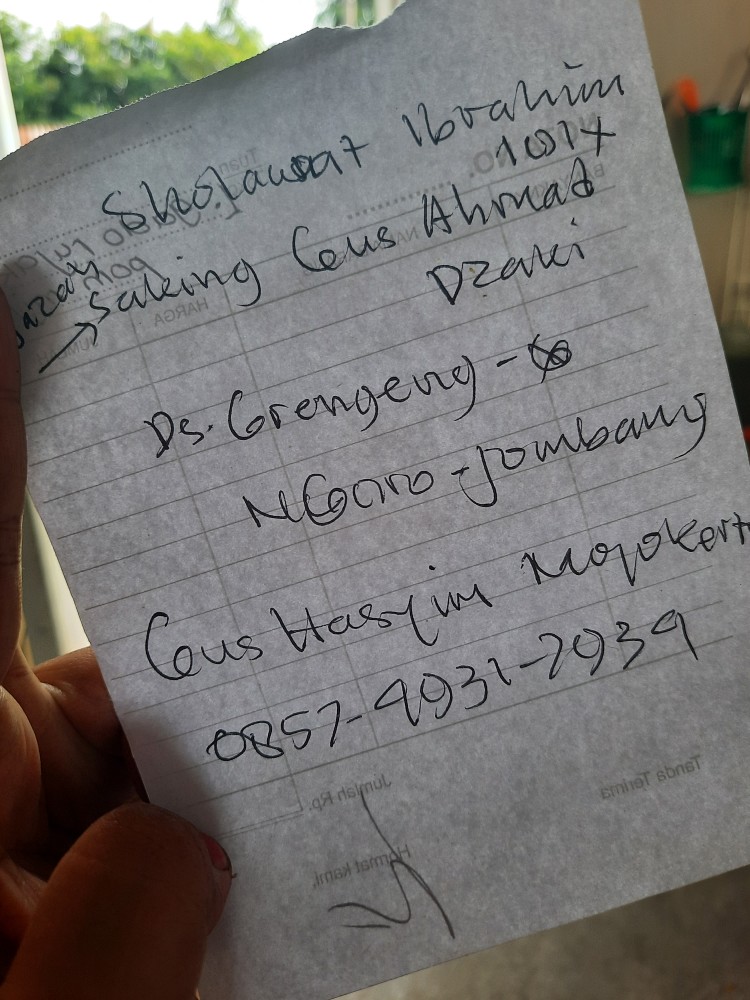 Sholawat Ibrahim
101x
Ijazah
Saking Gus Ahmad
Dzaki
Ds. Grengeng -
NGoro - Jombang
Gus Hasyim Mojokert
0857-4931-7939
Jumlah Rp.
Tanda Terima
Hormat kami,
HARGA